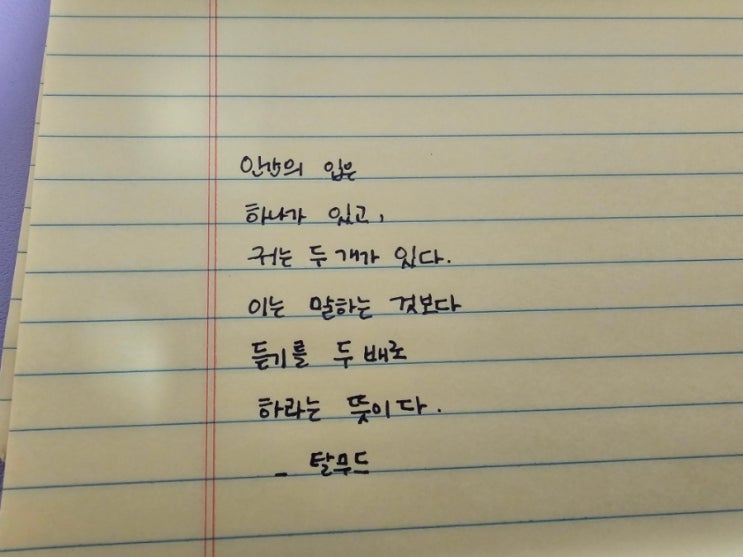 인간의 입은
하나가 있고,
귀는 두 개가 있다.
이는 말하는 것보다
듣기를 두 배로
하라는 뜻이다.
- 탈무드